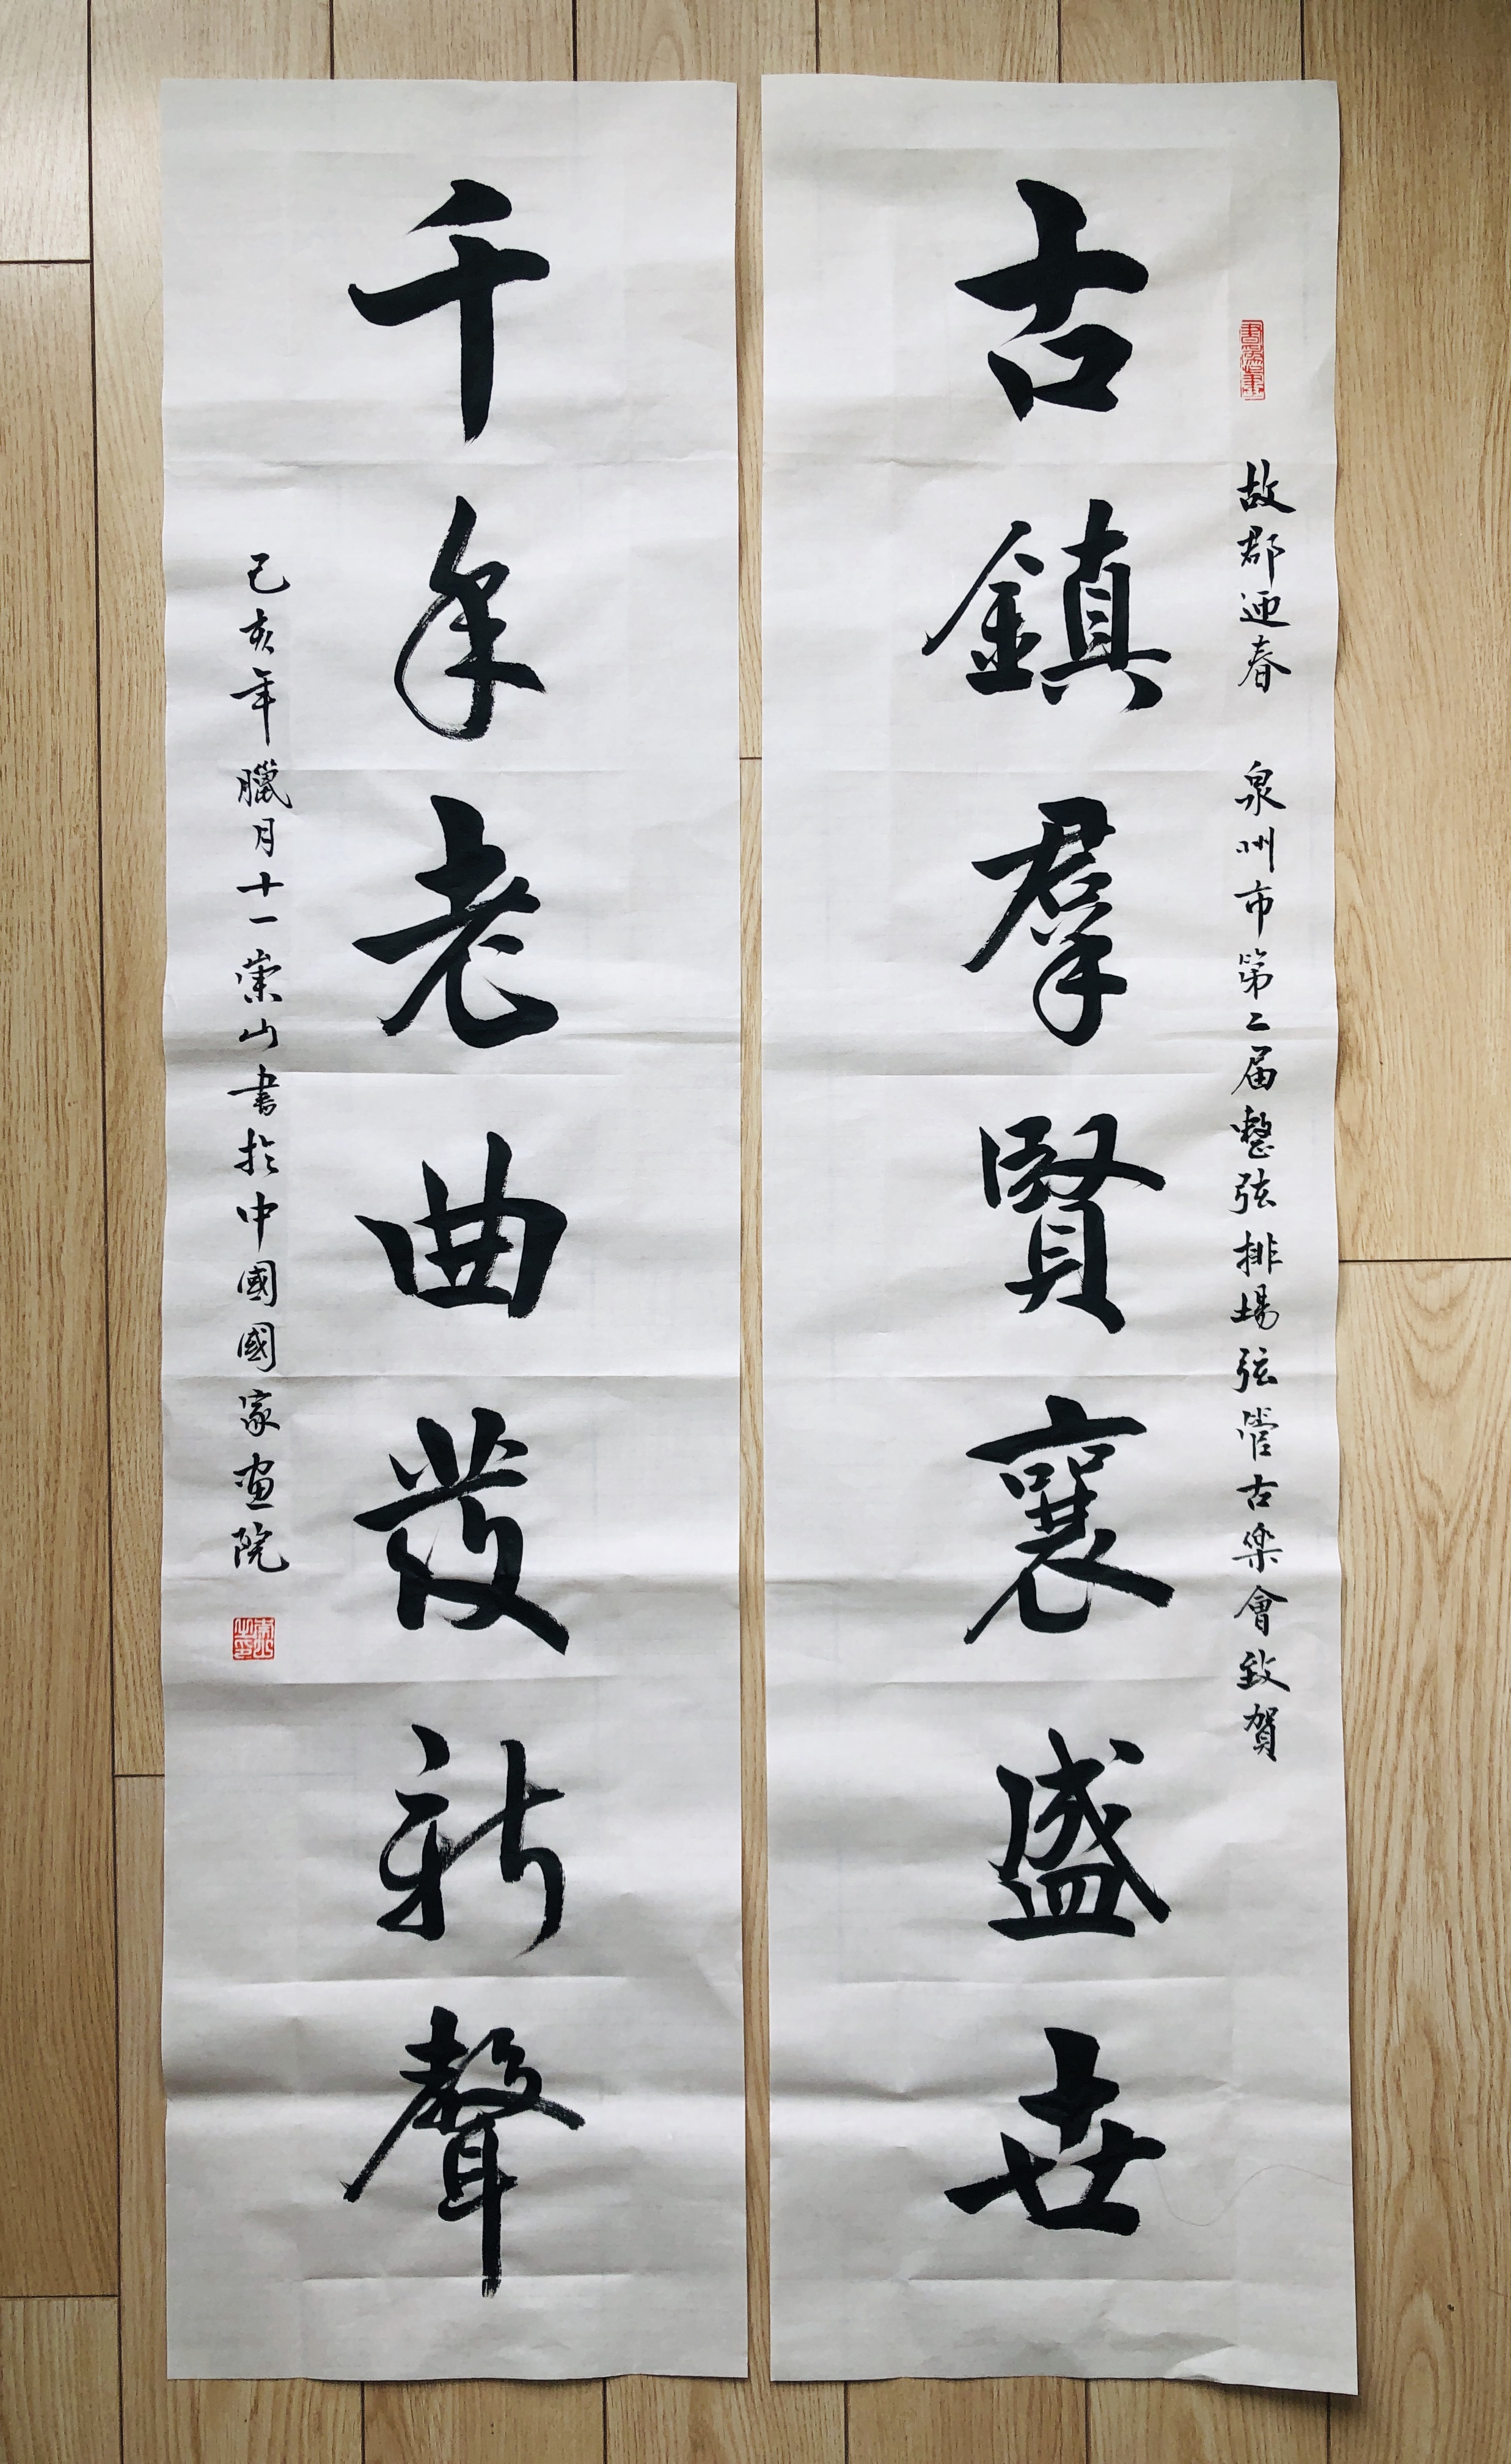 故郡迎春 泉州市第二届整弦排場弦管古樂會致賀
古鎮羣賢襄盛世
千年老曲發新聲
己亥年臘月十一崇山書於中國國家画院